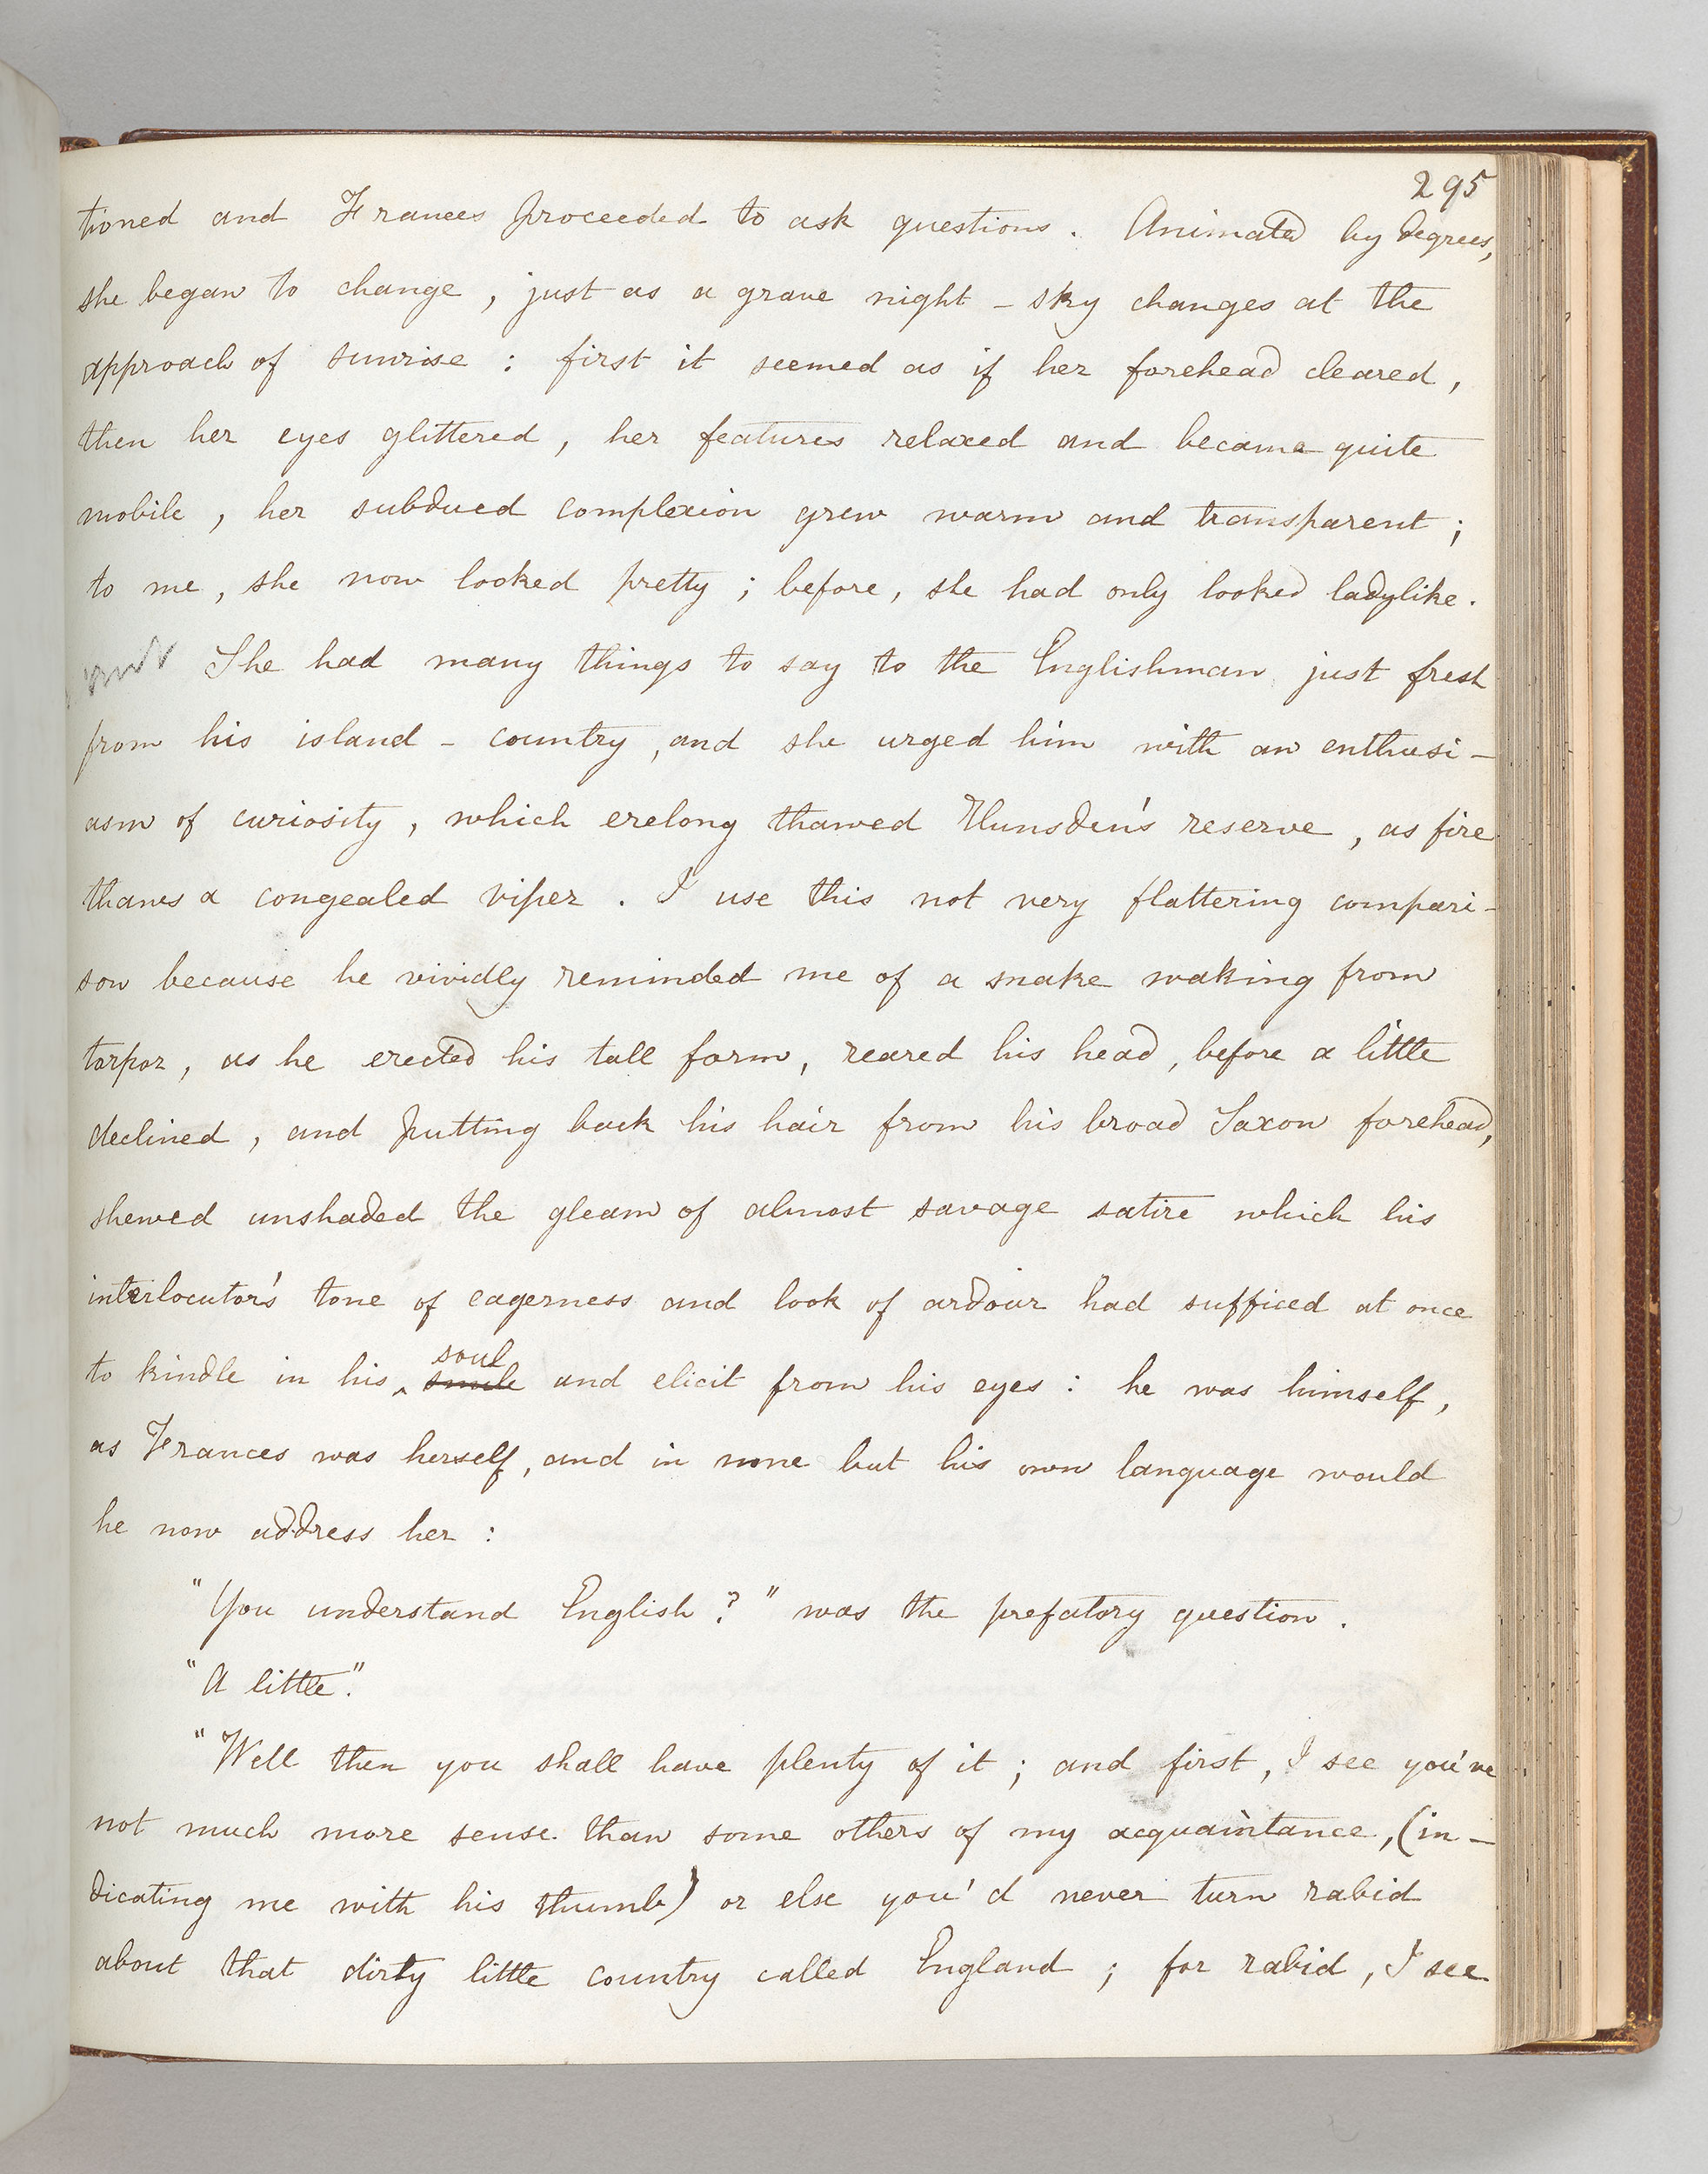 295
tioned and Frances proceeded to ask questions. Animated by degrees,
she began to change, just as a grave night-sky changes at the
approach of sunrise: first it seemed as if her forehead cleared,
then her eyes glittered, her features relaxed and became quite
mobile, her subdued complexion grew warm and transparent;
to me, she now looked pretty; before, she had only looked ladylike.
She had many things to say to the Englishman just fresh
from his island-country, and she urged him with an enthusi-
asm of curiosity, which erelong thawed Hunsden's reserve, as fire
thaws a congealed viper. I use this not very flattering compari-
son because he vividly reminded me of a snake waking from
torpor, as he erected his tall form, reared his head, before a little
declined, and putting back his hair from his broad Saxon forehead,
shewed unshaded the gleam of almost savage satire which his
interlocutor's tone of eagerness and look of ardour had sufficed at once
soul
to kindle in his smile and elicit from his eyes: he was himself,
as Frances was herself, and in none but his own language would
he now address her:
"You understand English?" was the prefatory question.
"A little."
"Well then you shall have plenty of it; and first, I see you've
not much more sense than some others of my acquaintance, (in-
dicating me with his thumb) or else you'd never turn rabid
about that dirty little country called England; for rabid, I see